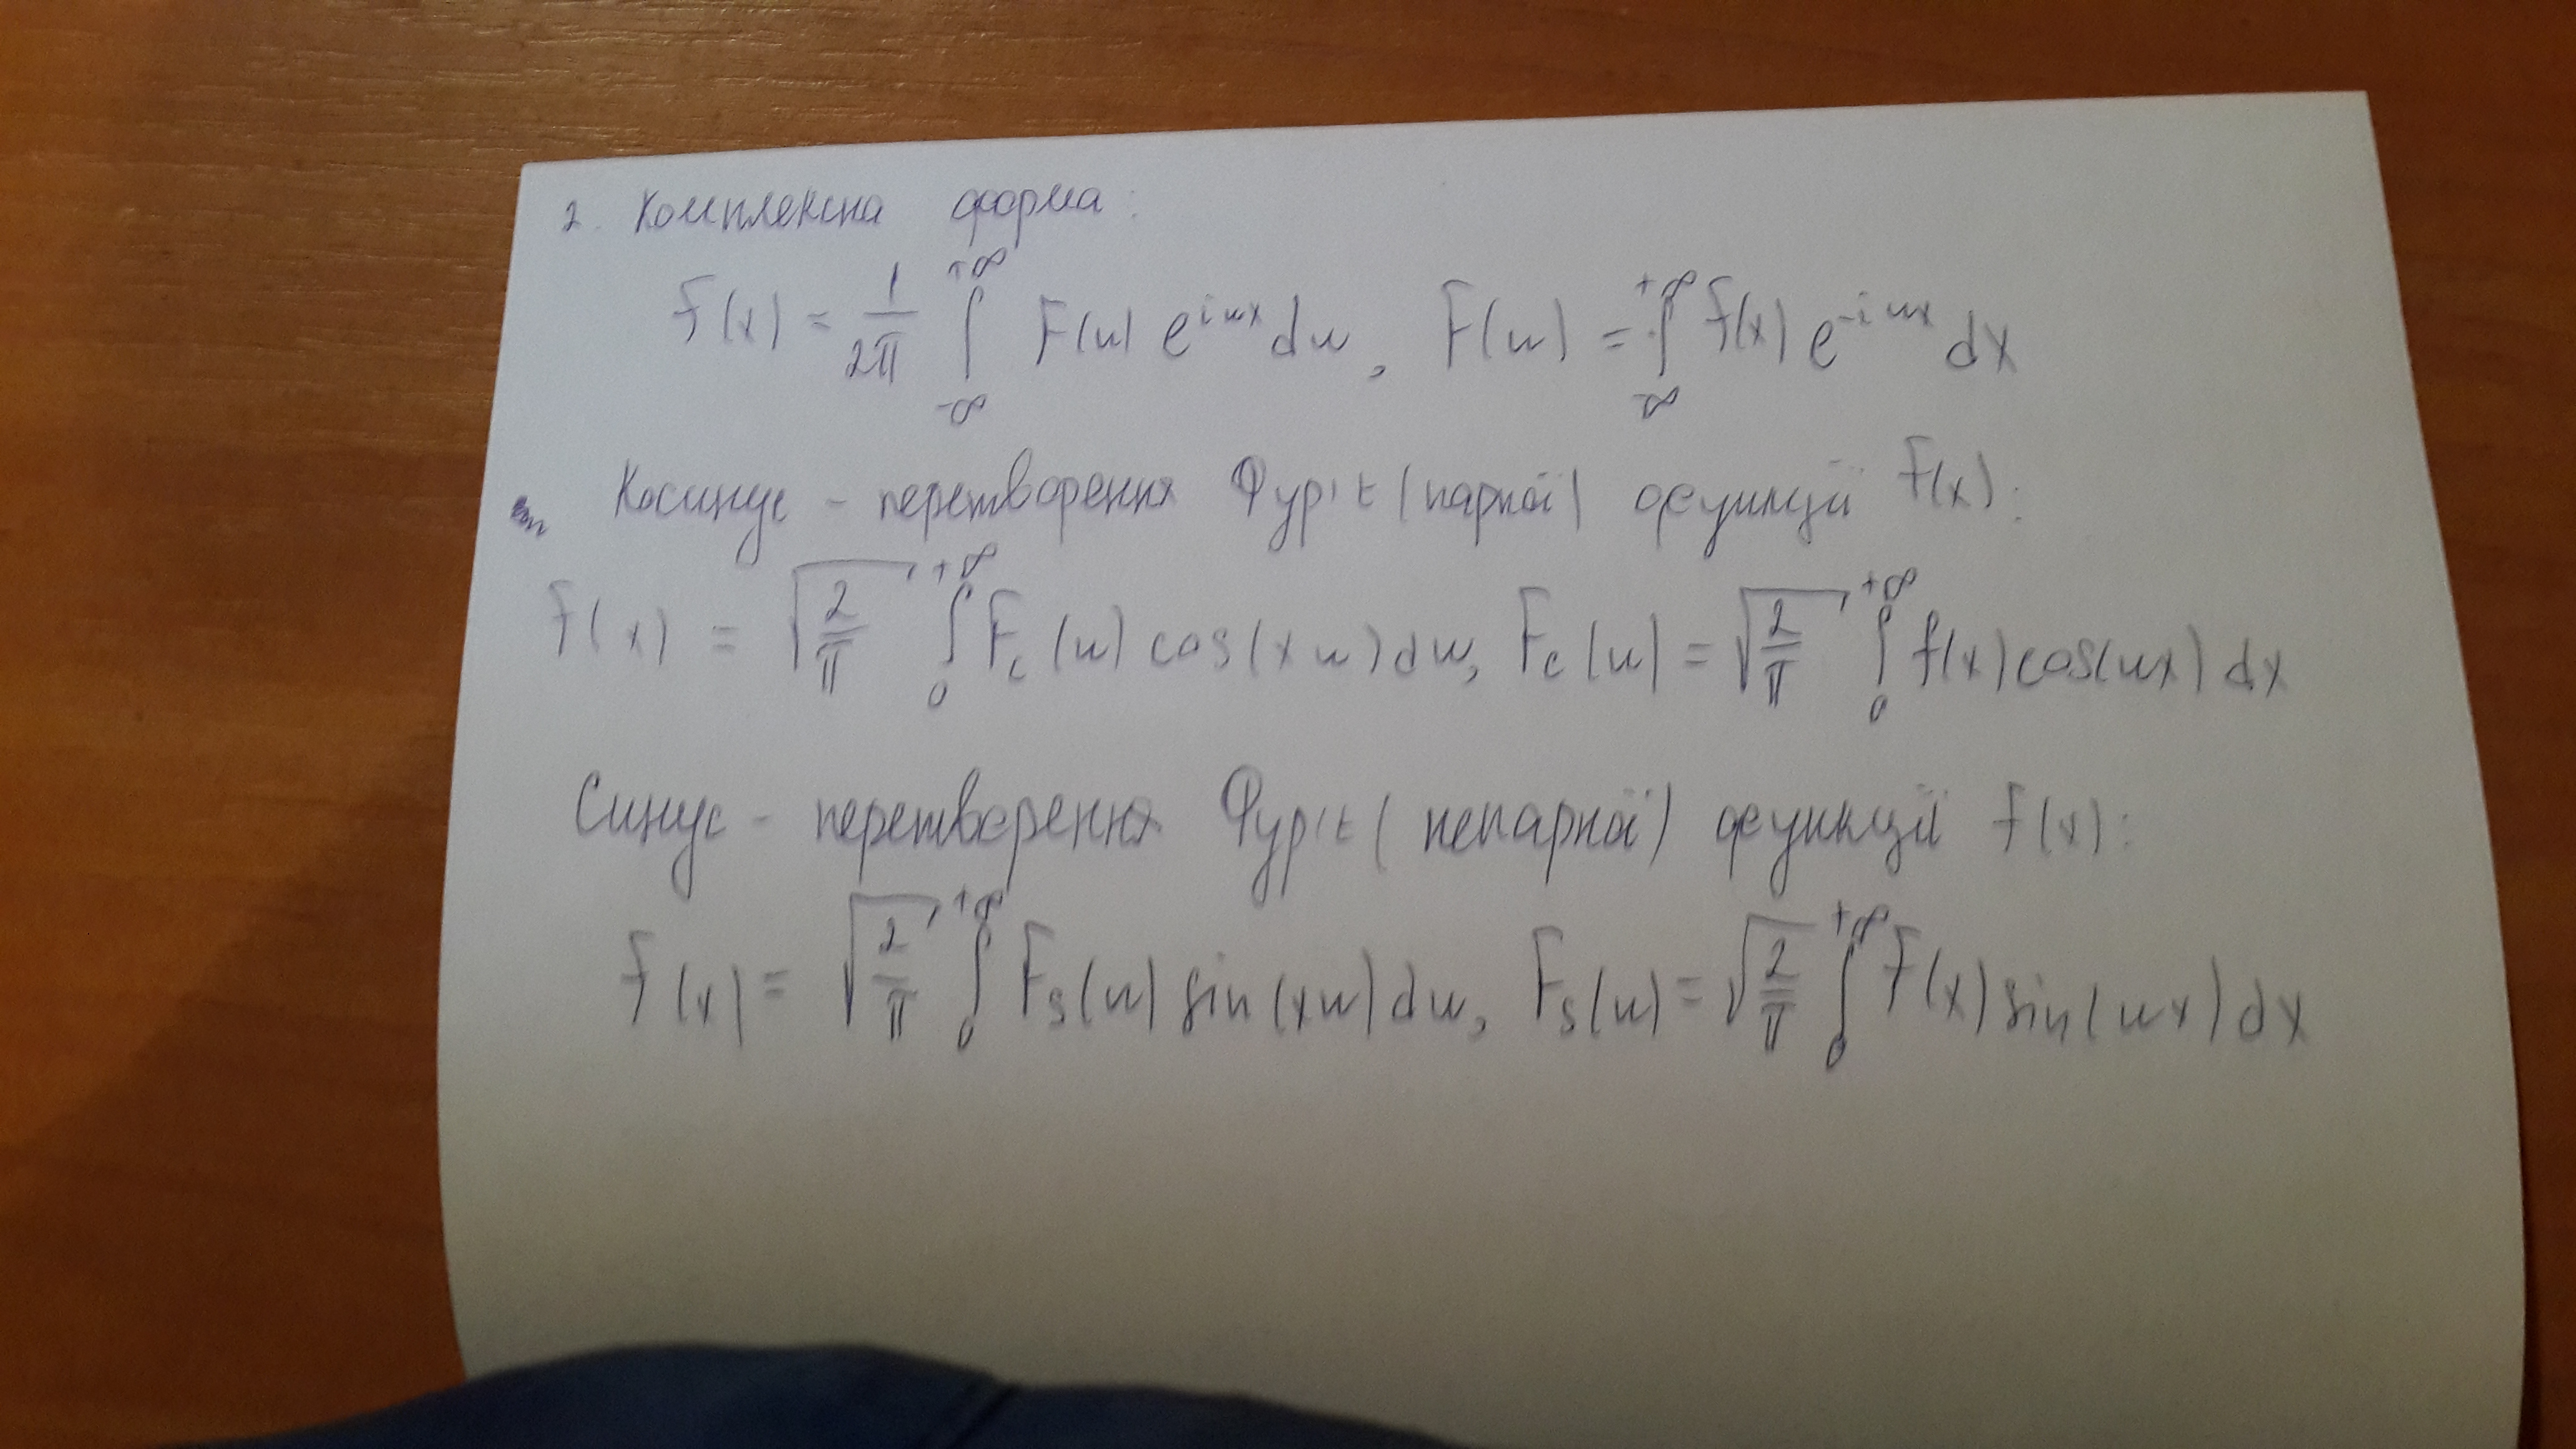 2. Комплексна форма:
f(x) = 1/2π ∫_{-∞}^{+∞} F(w) e^{iwx} dw, F(w) = ∫_{-∞}^{+∞} f(x) e^{-iwx} dx
Косинус - перетворення Фур'є (парної) функції f(x):
f(x) = √(2/π) ∫_0^{+∞} F_c(w) cos(xw) dw, F_c(w) = √(2/π) ∫_0^{+∞} f(x) cos(wx) dx
Синус - перетворення Фур'є (непарної) функції f(x):
f(x) = √(2/π) ∫_0^{+∞} F_s(w) sin(xw) dw, F_s(w) = √(2/π) ∫_0^{+∞} f(x) sin(wx) dx